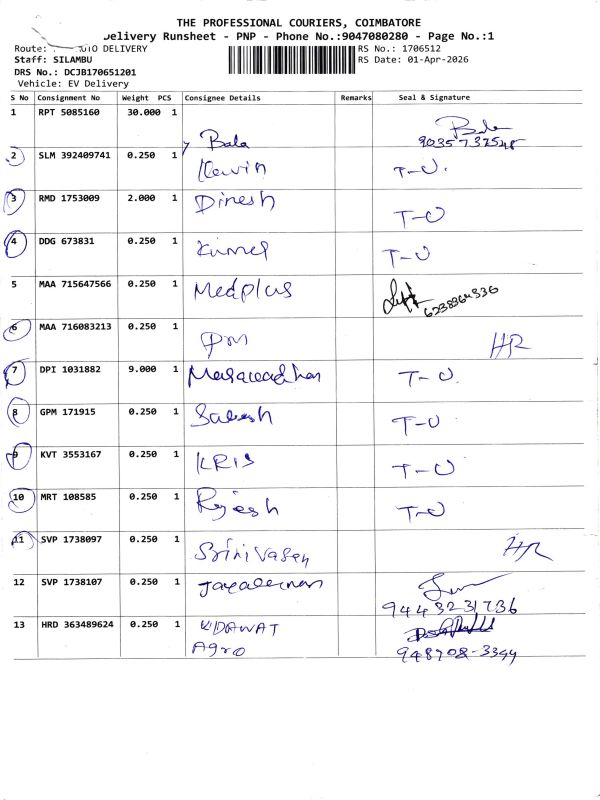 THE PROFESSIONAL COURIERS, COIMBATORE
Delivery Runsheet - PNP - Phone No.:9047080280 - Page No.:1
Route: DELIVERY
RS No.: 1706512
Staff: SILAMBU
RS Date: 01-Apr-2026
DRS No.: DCJB170651201
Vehicle: EV Delivery
S No Consignment No Weight PCS Consignee Details Remarks Seal & Signature
1 RPT 5085160 30.000 1 Bala Bala
2 SLM 392409741 0.250 1 Kevin T-U.
3 RMD 1753009 2.000 1 Dinesh T-U
4 DDG 673831 0.250 1 Kumar T-U
5 MAA 715647566 0.250 1 Medplus
6 MAA 716083213 0.250 1 pm HR
7 DPI 1031882 9.000 1 T-U.
8 GPM 171915 0.250 1 T-U
9 KVT 3553167 0.250 1 KRIS T-U
10 MRT 108585 0.250 1 Rajesh T-U
11 SVP 1738097 0.250 1 Srinivasan HR
12 SVP 1738107 0.250 1
9443231736
13 HRD 363489624 0.250 1 KDAWAT
Agro 948708-3394